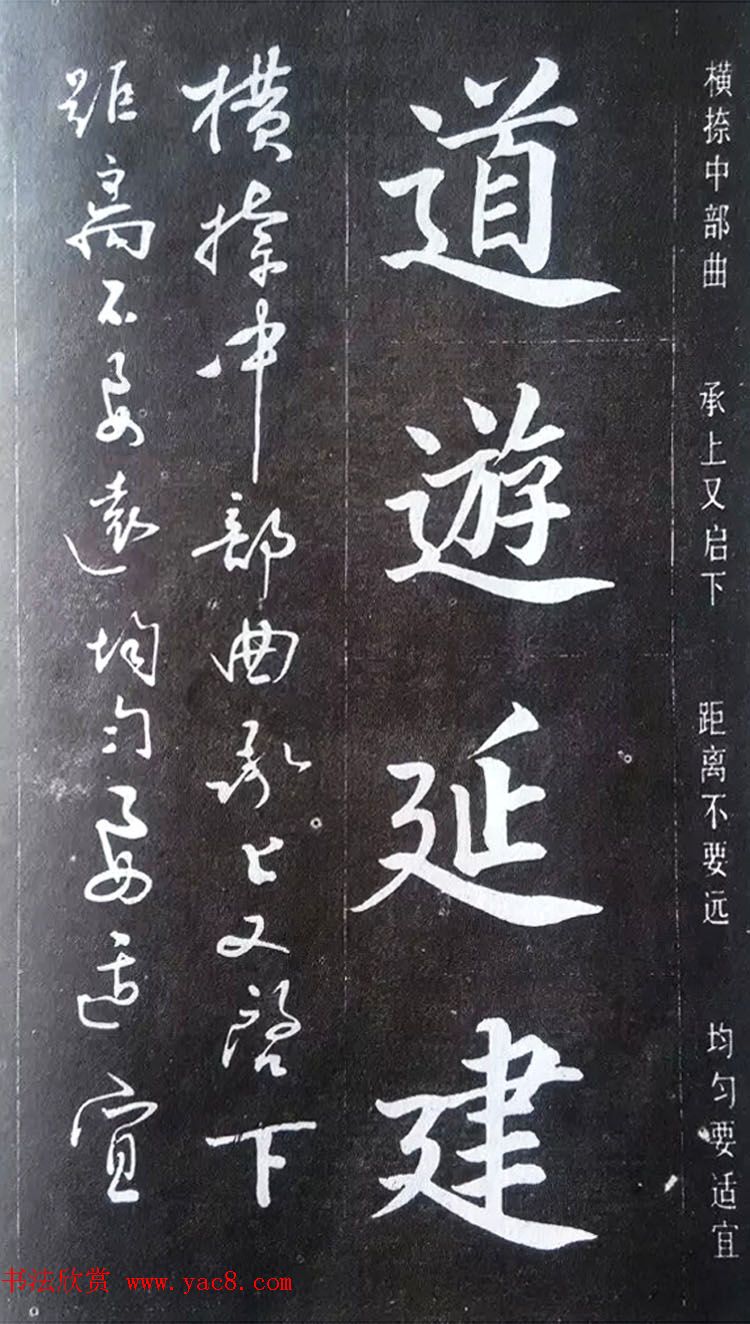 横捺中部曲 承上又启下 距离不要远 均匀要适宜
道遊延建
横捺中部曲承上又啓下
距离不要遠均匀要适宜
书法欣赏 www.yac8.com